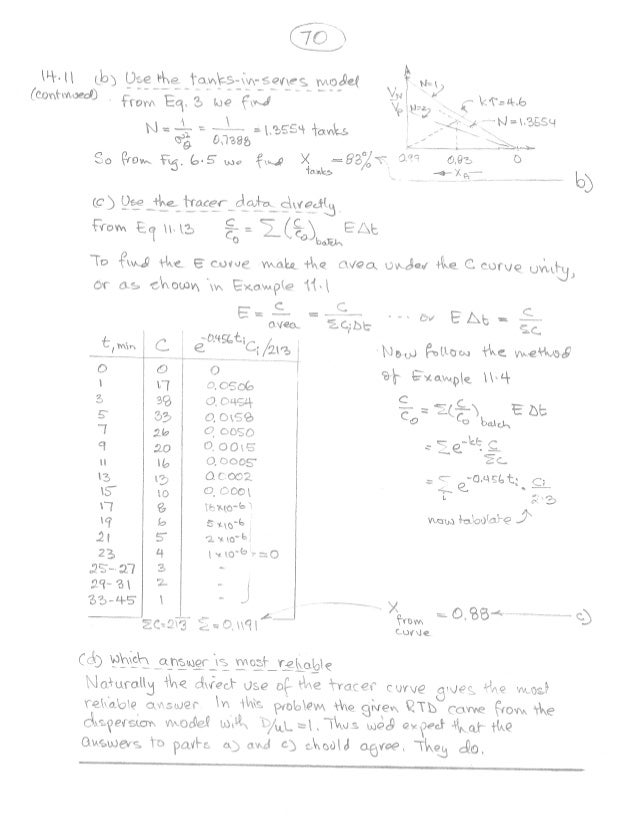 70
14.11 (b) Use the tanks-in-series model
(continued) from Eq. 3 we find
N = 1/σ²θ = 1/0,7388 = 1.3554 tanks
So from Fig. 6.5 we find X tanks = 83%
V_N/V_p
N=1
N=2
kτ=4.6
N=1.3554
0,83
0
X_A
b)
(c) Use the tracer data directly
From Eq 11.13 C/C₀ = Σ(C/C₀)batch EΔt
To find the E curve make the area under the C curve unity,
or as shown in Example 11.1
E = C/area = C/ΣCᵢΔt ... or EΔt = C/ΣC
t, min C e^-0.456tᵢ Cᵢ/213
0 0 0
1 17 0,0506
3 38 0,0454
5 33 0,0158
7 26 0,0050
9 20 0,0015
11 16 0,0005
13 13 0,0002
15 10 0,0001
17 8 16×10⁻⁶
19 6 5×10⁻⁶
21 5 2×10⁻⁶
23 4 1×10⁻⁶ ≈0
25-27 3 -
29-31 2 -
33-45 1 -
ΣC=213 Σ=0.1191
Now follow the method
of Example 11.4
C/C₀ = Σ(C/C₀)batch EΔt
= Σe^-kt · C/ΣC
= Σᵢ e^-0.456tᵢ · Cᵢ/213
now tabulate
X from curve = 0.88
c)
(d) Which answer is most reliable
Naturally the direct use of the tracer curve gives the most
reliable answer. In this problem the given RTD came from the
dispersion model with D/uL=1. Thus we'd expect that the
answers to parts a) and c) should agree. They do.